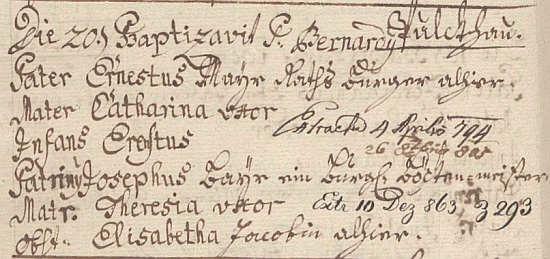 Die 20, Baptizavit P. Bernardy Pulckhau.
Pater Ernestus Mayr Raths Burger alhier.
Mater Catharina uxor
Extractu 4 Aprilis 794
Infans Erestus
26
Patriny Josephus Bayr ein Burgl. meister
Matr. Theresia uxor Extr 10 Dez 863 z 293
Obst. Elisabetha Jacobin alhier.